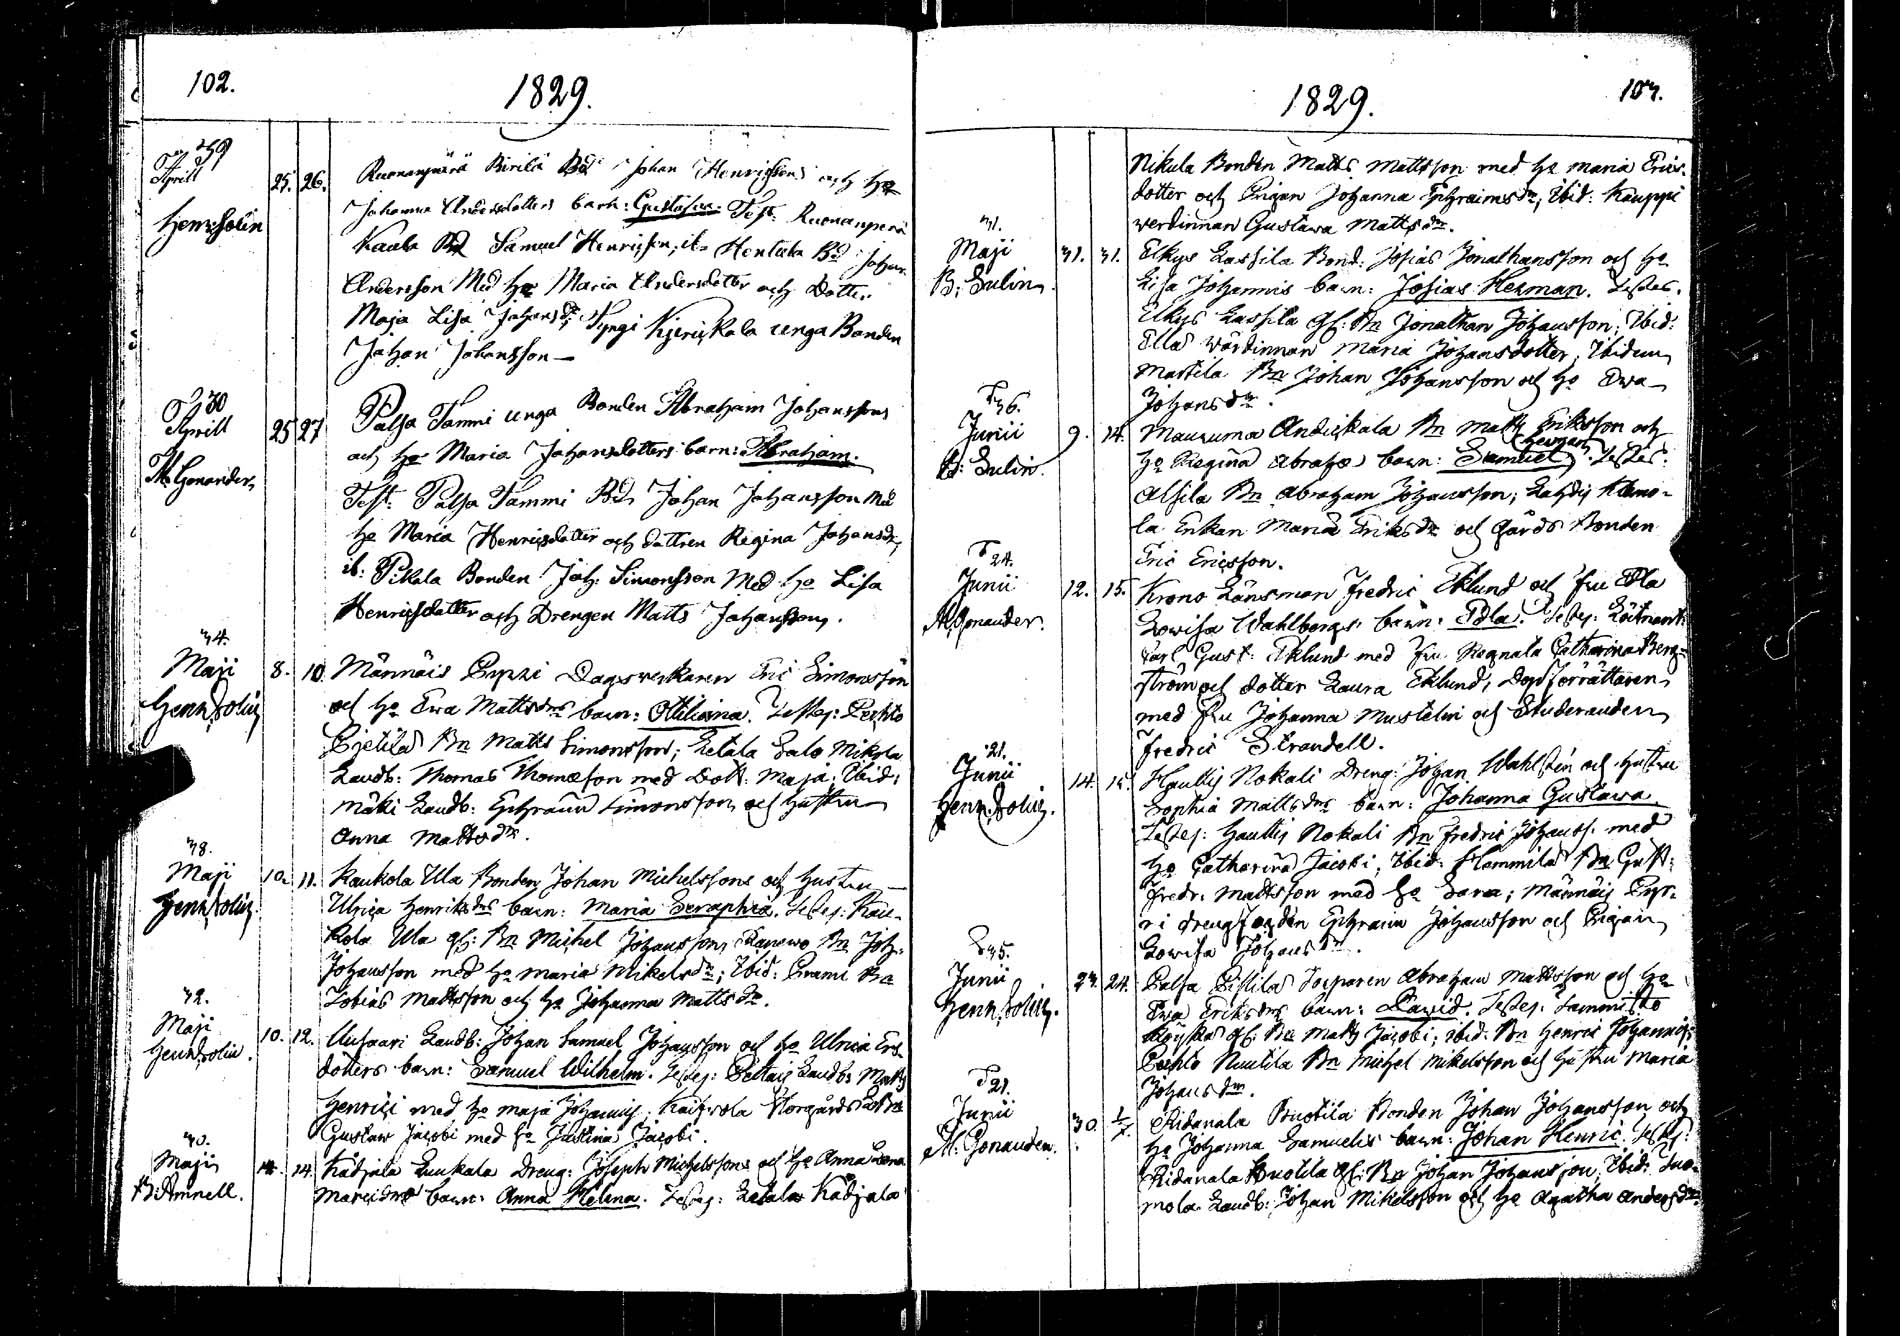 102.
1829.
39
Aprill
Henr: Solin
25. 26.
Ruonanperä Pirilä Bd: Johan Henrichsons och Ho
Johanna Andersdotters barn: Gustafva. Test: Ruonanperä
Kaala Bd Samuel Henricson; ib: Bd Johan
Andersson Med Ho Maria Andersdotter och Dotter
Maja Lisa Johansdr unga Bonden
Johan Johansson
30
Aprill
Gonander
25 27
Palsa Tammi unga Bonden Abraham Johanssons
och Ho Maria Johansdotters barn: Abraham.
Test: Palsa Tammi Bd Johan Johansson Med
Ho Maria Henrichsdotter och dottren Regina Johansdr
ib: Pikala Bonden Joh: Simonsson Med Ho Lisa
Henrichsdotter och Drengen Matts Johansson.
34.
Maji
Henr: Solin
8. 10.
Männäis Pyrri Dagsverkaren Eric Simonsson
och Ho Ewa Mattsdrs barn: Ottiliana. Testes:
Bn Matts Simonsson; Letala Salo Mikola
Landb: Thomas Thomasson med Dott: Maja; Ibid:
Mäki Landb: Ephraim Simonsson och hustru
Anna Mattsdr.
38.
Maji
Henr: Solin
10. 11.
Kaukola Ula Bonden Johan Michelssons och hustru
Ulrica Henriksdrs barn: Maria Seraphia. Testes: Kau-
kola Ula gl: Bn Michel Johansson, Bn Joh:
Johansson med Ho Maria Mikelsdr; Ibid: Bn
Tobias Mattsson och Ho Johanna Mattsdr.
32.
Maji
Henr: Solin.
10. 12.
Landb: Johan Samuel Johansson och Ho Ulrica Ers-
dotters barn: Samuel Wilhelm. Testes: Landb: Matts
Henrici med Ho Maja Johannis;
Gustaw Jacobi med Ho Justina Jacobi.
30.
Maji
B: Amnell.
14.
Kådjala Luukala Dreng: Joseph Michelssons och Ho Anna Lena
barn: Anna Helena. Testes: Letala Kådjala
1829.
103.
Nikula Bonden Matts Mattsson med Ho Maria Erics-
dotter och Pigan Johanna Ephraimsdr; Ibid: Kauppi
werdinnan Gustava Mattsdr.
31.
Maji
B: Sulin.
31. 31.
Elkys Lassila Bond: Josias Jonathansson och Ho
Lisa Johannis barn: Josias Herman. Testes.
Elkys Lassila gl: Bn Jonathan Johansson; Ibid:
Ella Wärdinnan Maria Johansdotter; Ibidem
Marttila Bn Johan Johansson och Ho Ewa
Johansdr.
36.
Junii
B: Sulin.
9. 14.
Maununa Andickala Bn Matts Eriksson och
Ho Regina Abrahs barn: Samuel Herman. Testes:
Alsila Bn Abraham Johansson;
la Enkan Maria Eriksdr och Gårds Bonden
Eric Ericsson.
24.
Junii
Gonander.
12. 15.
Krono Länsman Fredric Eklund och fru Edla
Lowisa Wahlbergs barn: Edla. Testes: Löitnant
Carl Gust: Eklund med fru Regnala Catharina Berg-
ström och dotter Laura Eklund; Dopförrättaren
med fru Johanna Mustelin och Studeranden
Fredric Strandell.
21.
Junii
Henr: Solin.
14. 15.
Hautis Nokali Dreng: Johan Wahlstén och hustru
Sophia Mattsdrs barn: Johanna Gustava.
Testes: Hautis Nokali Bn Fredric Johanss: med
Ho Catharina Jacobi; Ibid: Hammila Bn Gust:
Fredr: Mattsson med Ho Sara; Männäis Pyr-
ri Ephraim Johansson och Pigan
Lowisa Johansdr.
35.
Junii
Henr: Solin.
23. 24.
Palsa Torparen Abraham Mattsson och Ho
Ewa Eriksdrs barn: David. Testes: Tammisto
gl: Bn Matts Jacobi; ibid: Bn Henric Johannis;
Nuutila Bn Michel Mikelsson och hustru Maria
Johansdr.
21.
Junii
Gonander.
30. 1/7.
Ridanala Ruotila Bonden Johan Johansson och
Ho Johanna Samuels barn: Johan Henric. Testes:
Ridanala Ruotila gl: Bn Johan Johansson, Ibid: Tuo-
mola Landb: Johan Mikelsson och Ho Agatha Andersdr